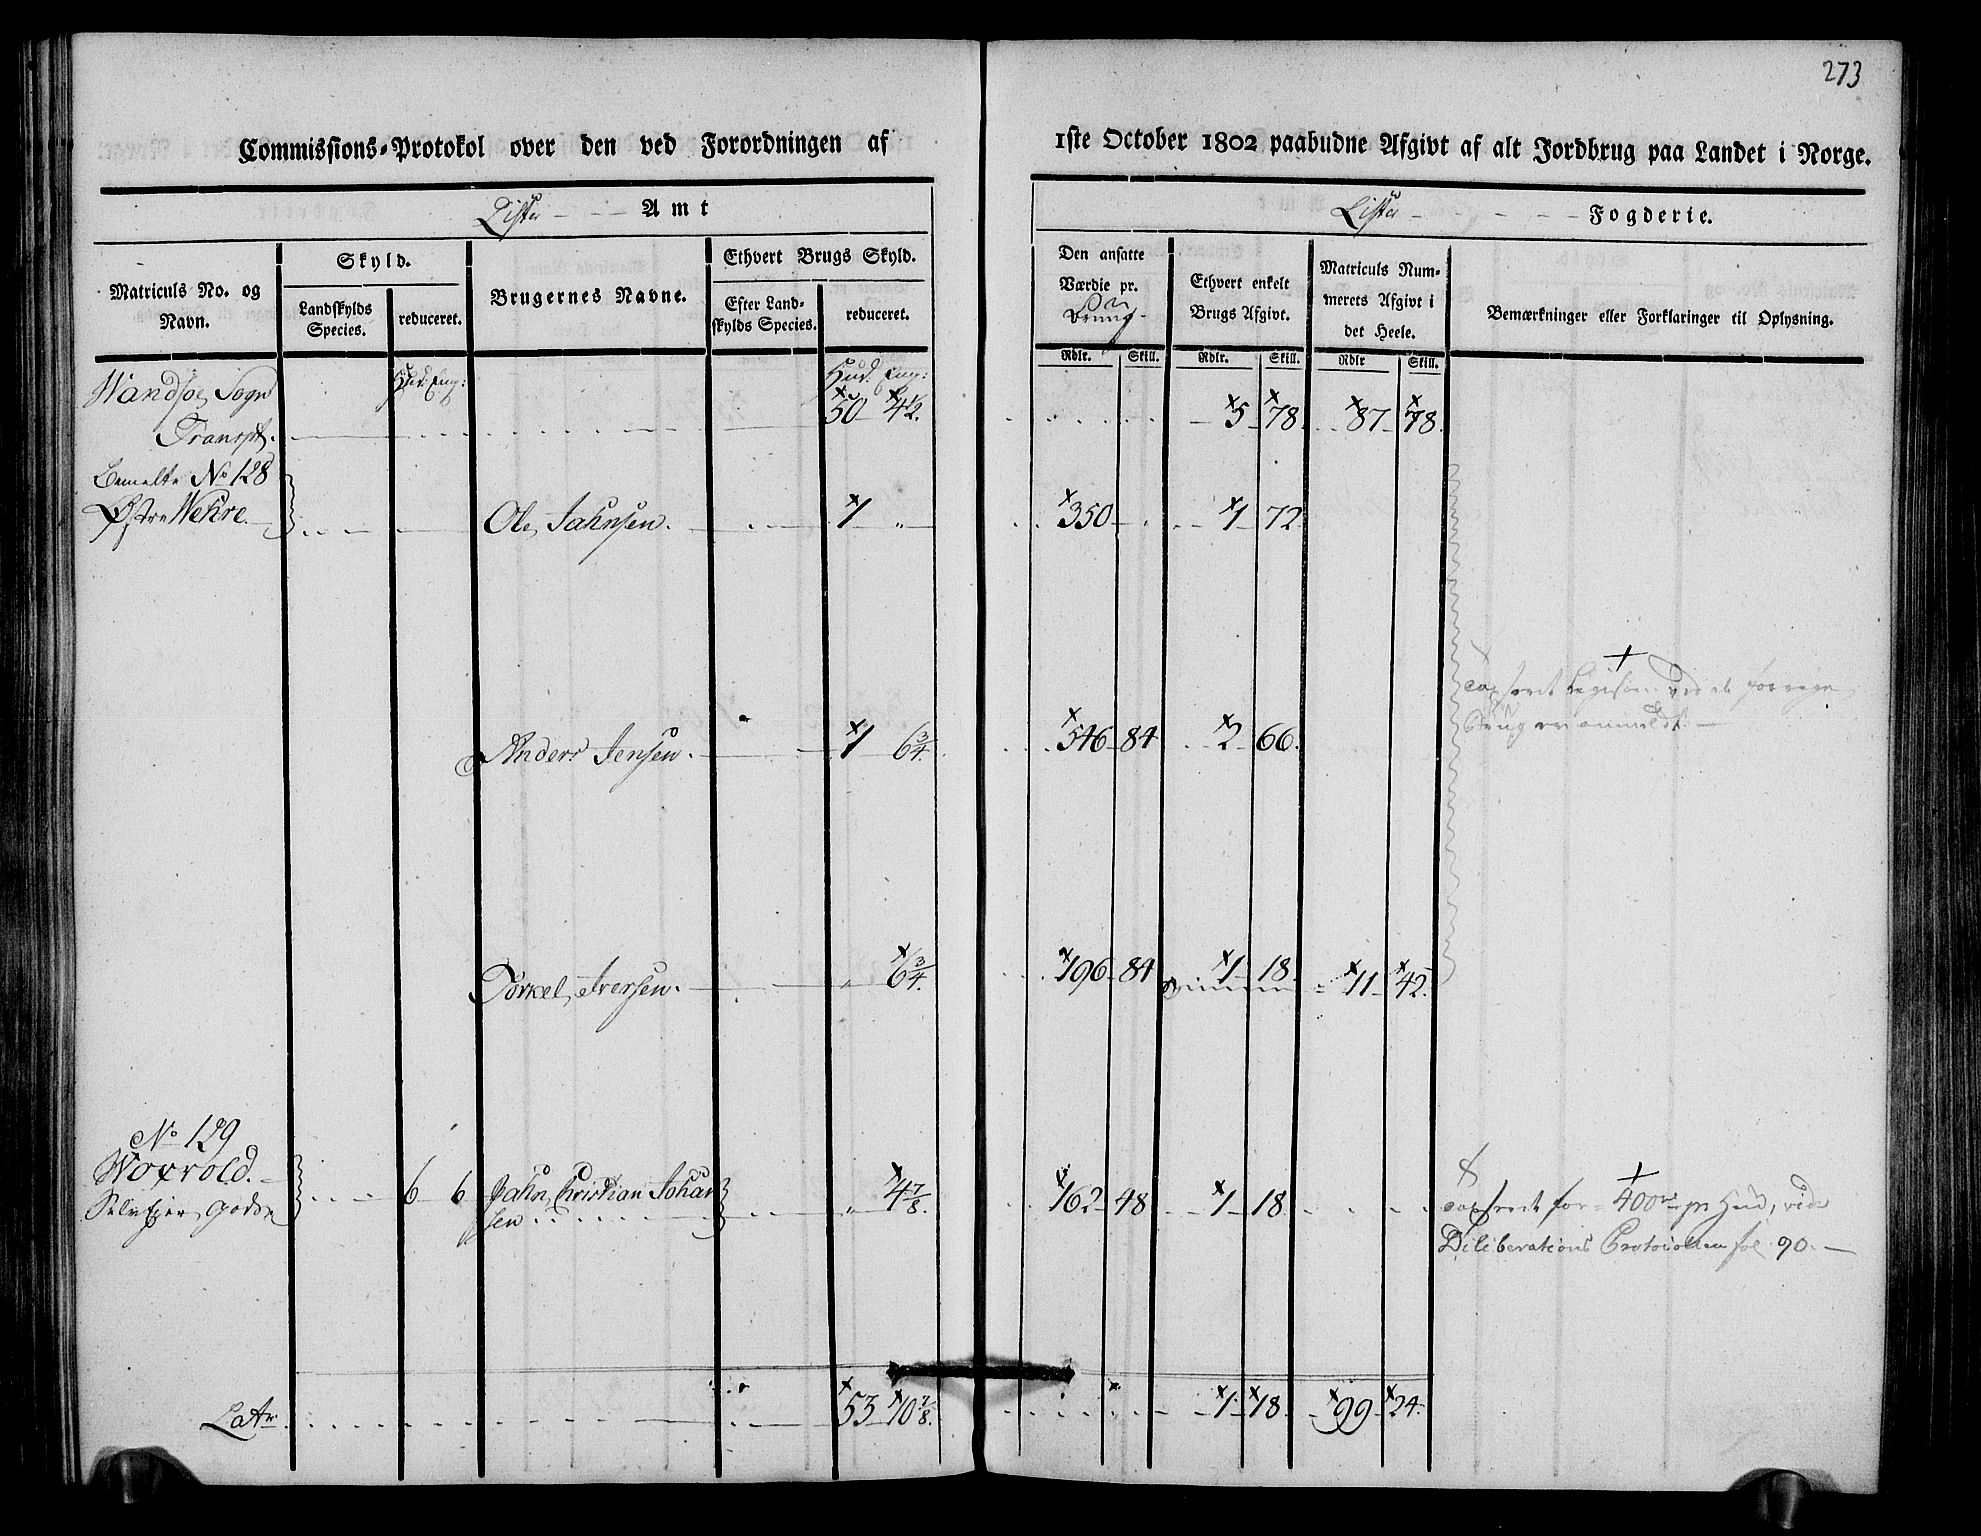 273
Commissions-Protokol over den ved Forordningen af 1ste October 1802 paabudne Afgivt af alt Jordbrug paa Landet i Norge.
Lister Amt
Lister Fogderie.
Matriculs No. og Navn.
Skyld.
Landskylds Species.
reduceret.
Brugernes Navne.
Ethvert Brugs Skyld.
Efter Landskylds Species.
reduceret.
Den ansatte Værdie pr.
Ethvert enkelt Brugs Afgivt.
Matriculs Nummerets Afgivt i det Heele.
Bemærkninger eller Forklaringer til Oplysning.
Rdlr. Skill. Rdlr. Skill. Rdlr Skill.
Hud. Eng: Hud. Eng:
Wandsøe Sogn
Transpt. 50 4½. 5 78. 87 78.
Bemelte No 128
Østre Wehre. Ole Jahnsen. 1 „ 350 1 72
Anders Jensen. 1 6¾. 546 84 2 66.
Torkel Iversen. „ 6¾. 196 84 1 18. 11 42.
No 129
Woxvold.
6 6 Jahn Christian Johan
sen „ 4⅞. 162 48 1 18
for 400 pr Hud, vide
Deliberations Protocollen fol 90.
Lat. 53 10⅞. 1 18 99 24.